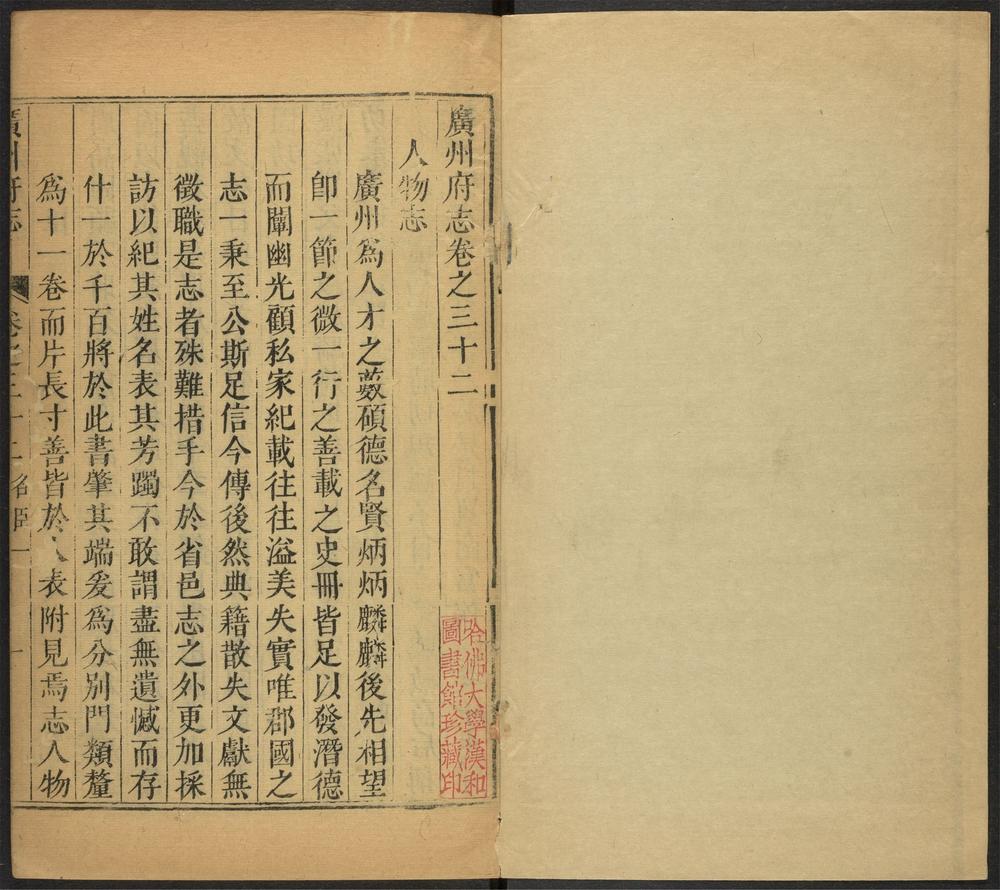 廣州府志卷之三十二
人物志
廣州爲人才之藪碩德名賢炳炳麟麟後先相望
卽一節之微一行之善載之史冊皆足以發潛德
而闡幽光顧私家紀載往往溢美失實唯郡國之
志一秉至公斯足信今傳後然典籍散失文獻無
徵職是志者殊難措手今於省邑志之外更加採
訪以紀其姓名表其芳躅不敢謂盡無遺憾而存
什一於千百將於此書肇其端爰爲分別門類釐
爲十一卷而片長寸善皆於表附見焉志人物
廣州府志 卷之三十二 名臣 一
哈佛大學漢和
圖書館珍藏印